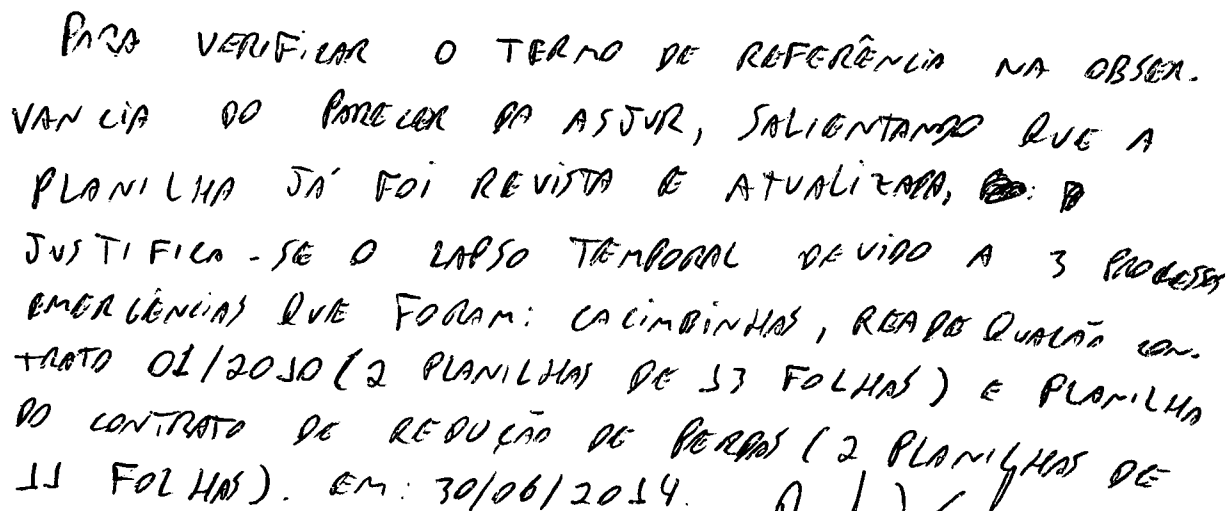 PARA VERIFICAR O TERMO DE REFERÊNCIA NA OBSER-
VANCIA DO PARECER DA ASJUR, SALIENTANDO QUE A
PLANILHA JÁ FOI REVISTA E ATUALIZADA,
JUSTIFICA-SE O LAPSO TEMPORAL DEVIDO A 3 PROCESSOS
EMERGÊNCIAS QUE FORAM: CACIMBINHAS, READEQUAÇÃO CON-
TRATO 01/2010 (2 PLANILHAS DE 13 FOLHAS) E PLANILHA
DO CONTRATO DE REDUÇÃO DE PERDAS (2 PLANILHAS DE
11 FOLHAS). EM: 30/06/2014.